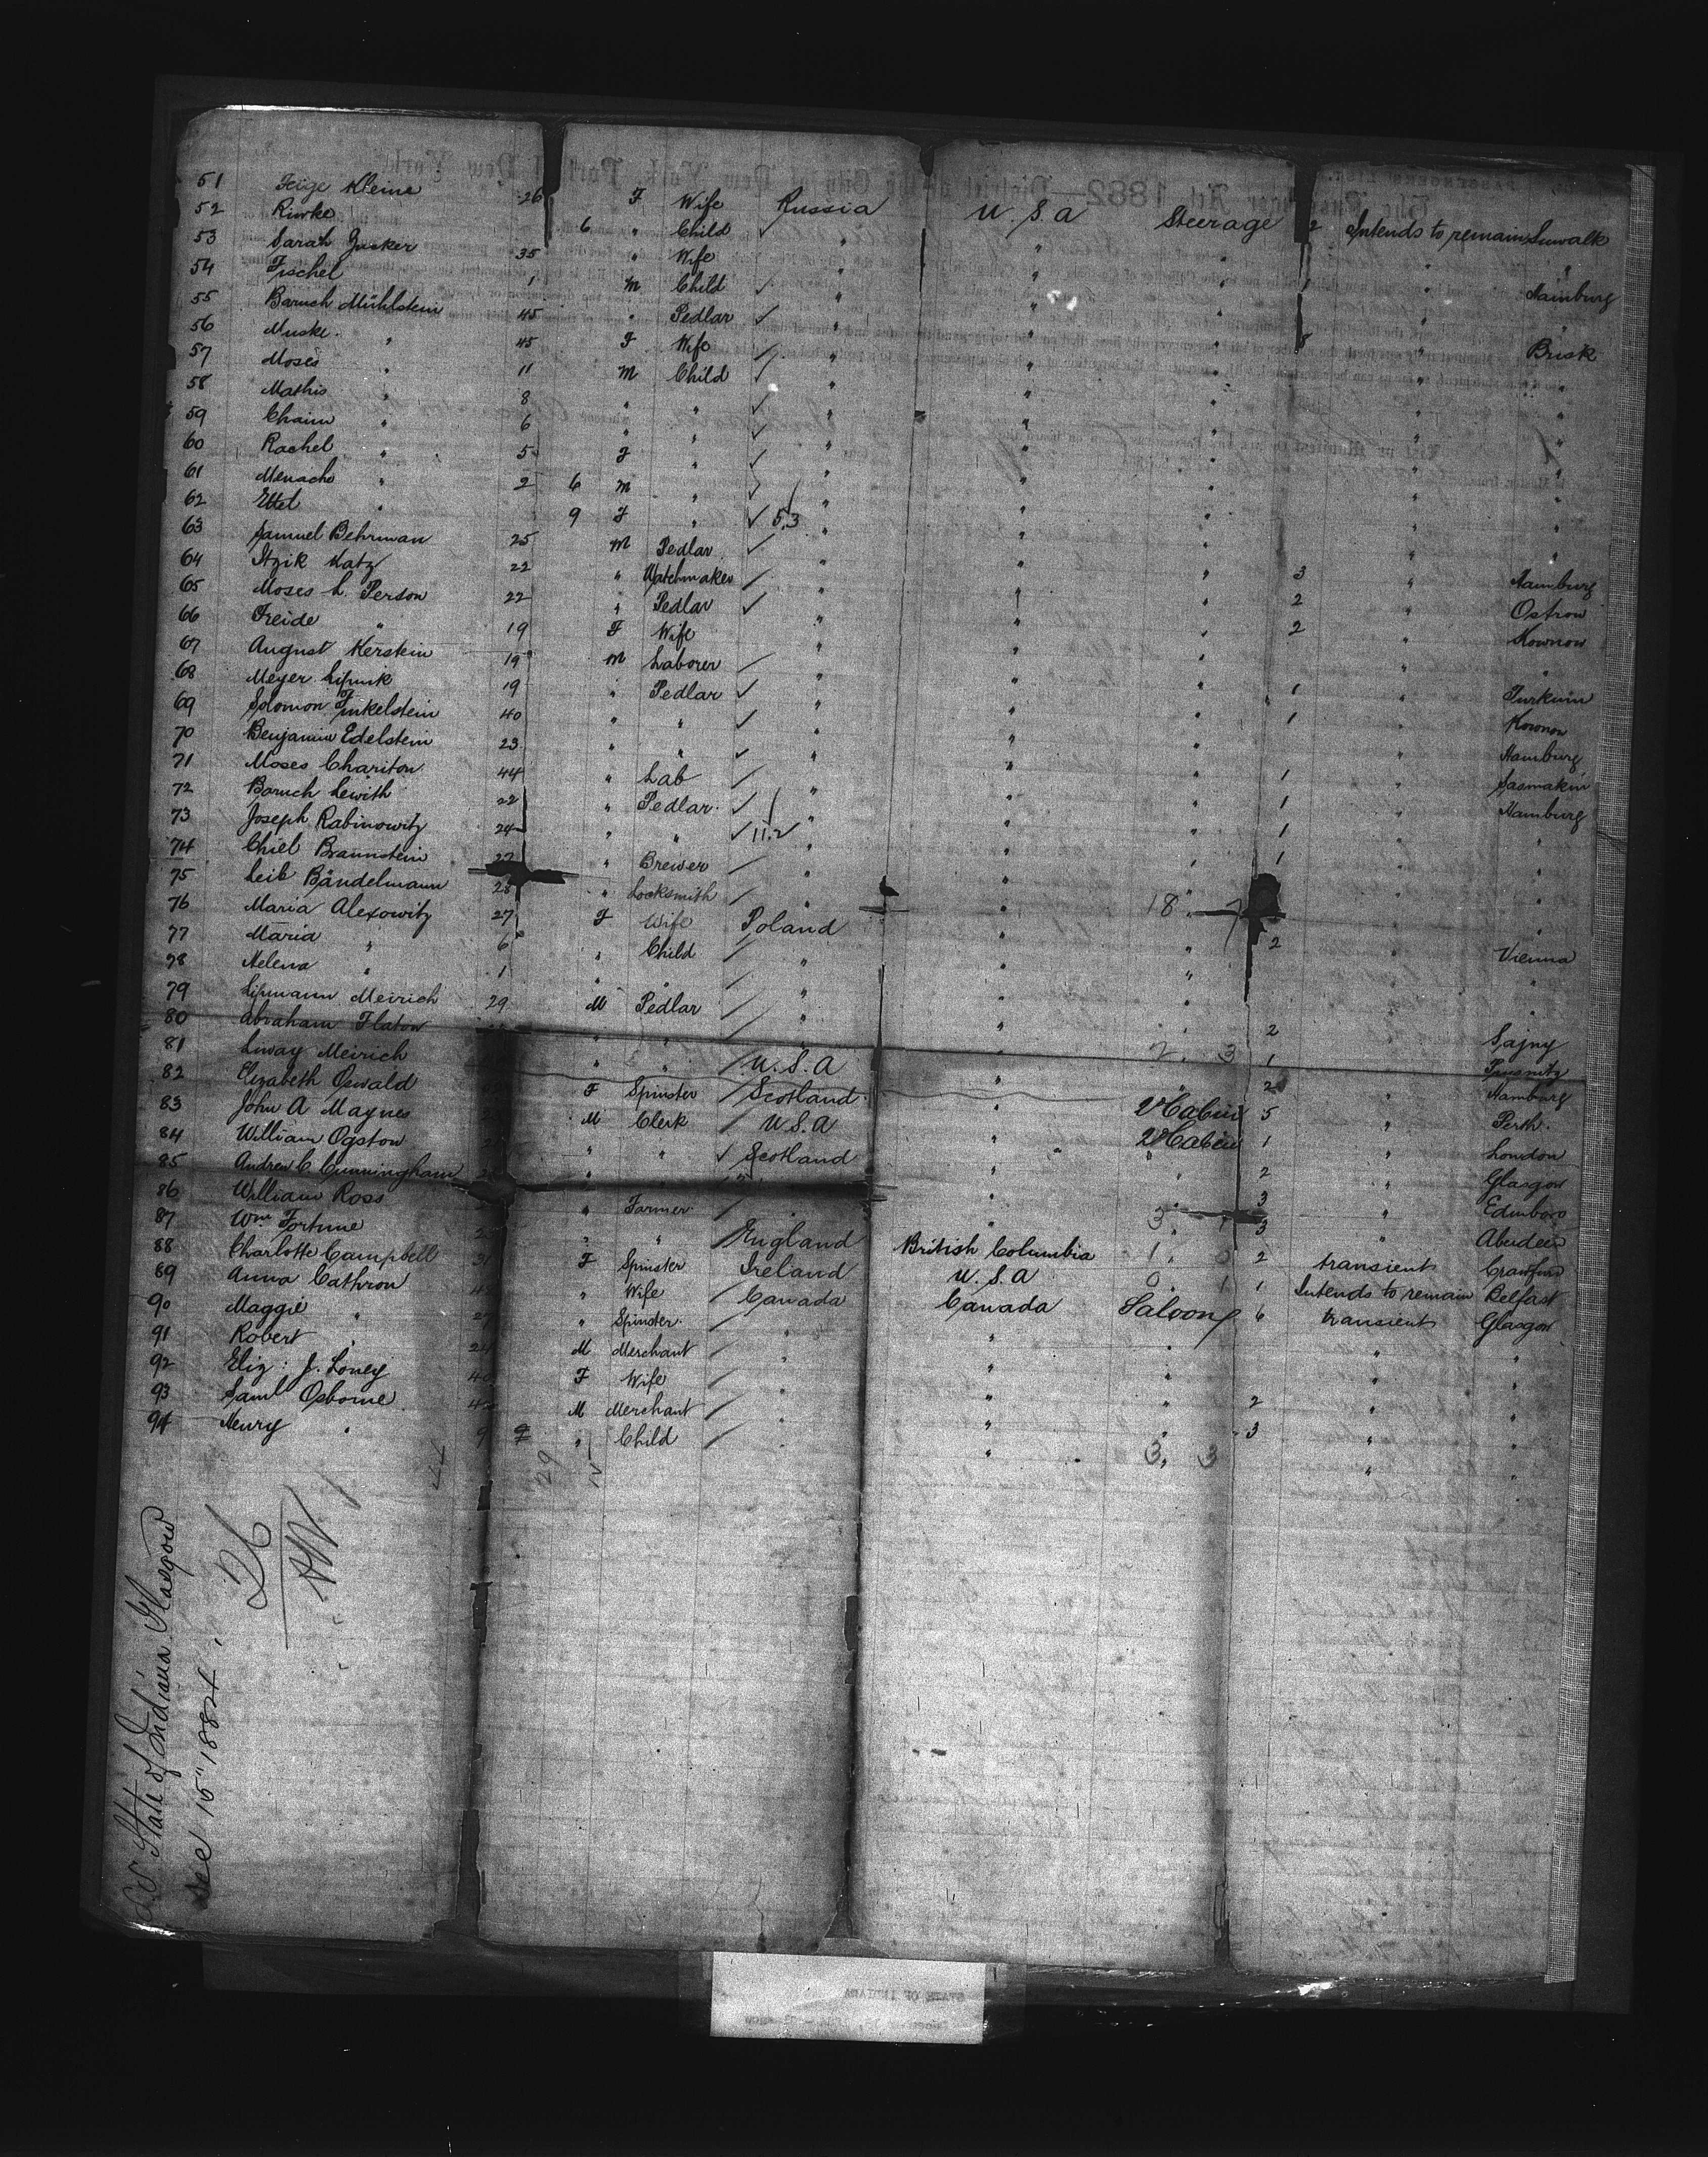 51 Feige Kleine 26 F Wife Russia U.S.A Steerage 2 Intends to remain Suwalk
52 Riwke " 6 " Child ✓ " " " " "
53 Sarah Zucker 35 " Wife " " " 1 " Hamburg
54 Fischel " 1 M Child ✓ " " " " "
55 Baruch Mühlstein 45 " Pedlar ✓ " " " 8 " Brisk
56 Muske " 45 F Wife / " " " " "
57 Moses " 11 M Child ✓ " " " " "
58 Mathis " 8 " " ✓ " " " " "
59 Chaim " 6 " " ✓ " " " " "
60 Rachel " 5 F " ✓ " " " " "
61 Menache " 2 6 M " ✓ " " " " "
62 Ettel " 9 F " ✓ 5.3 " " " " "
63 Samuel Behrman 25 M Pedlar ✓ " " " 3 " Hamburg
64 Itzik Katz 22 " Watchmaker / " " " 2 " Ostrow
65 Moses L. Person 22 " Pedlar ✓ " " " 2 " Kownow
66 Freide " 19 F Wife " " " " "
67 August Kerstein 19 M Laborer / " " " 1 " Turkum
68 Meyer 19 " Pedlar ✓ " " " 1 " Kownow
69 Solomon Finkelstein 40 " " ✓ " " " " Hamburg
70 Benjamin Edelstein 23 " " ✓ " " " 1 " Sasmakin
71 Moses Chariton 44 " Lab / " " " 1 " Hamburg
72 Baruch Lewith 22 " Pedlar ✓ " " " 1 " "
73 Joseph Rabinowitz 24 " " ✓ 11.2 " " " 1 " "
74 Chiel Braunstein 27 " Brewer / " " " " "
75 Leib Bändelmann 28 " Locksmith / " " 18 " 7 " "
76 Maria Alexowitz 27 F Wife Poland " " 2 " Vienna
77 Maria " 6 " Child / " " " " "
78 Helena " 1 " " / " " " " "
79 Lipmann Meirich 29 M Pedlar / " " " 2 " Sajny
80 Abraham Flatow " " / " " 2. 3 1
81 Liway Meirich " " / U.S.A " " 2 " Hamburg
82 Elizabeth Oswald F Spinster / Scotland " 2d Cabin 5 " Perth.
83 John A Maynes M Clerk / U.S.A " 2d Cabin 1 " London
84 William Ogston " " ✓ Scotland " " 2 " Glasgow
85 Andrew C Cunningham " " / " " " 3 " Edinboro
86 William Ross " Farmer / " " 3. 1 3 " Aberdeen
87 Wm Fortune " " / England British Columbia 1. 0 2 transient Crawfurd
88 Charlotte Campbell 31 F Spinster Ireland U.S.A 0. 1 1 Intends to remain Belfast
89 Anna Cathron " Wife / Canada Canada Saloon 6 transient Glasgow
90 Maggie " 27 " Spinster / " " " " "
91 Robert " 24 M Merchant / " " " " "
92 Eliz: J. Loney 40 F Wife / " " " 2 " "
93 Saml Osborne M Merchant / " " " 3 " "
94 Henry " 9 " Child / " " 3. 3 " "
29
26
SS State of Indiana Glasgow
Dec 15" 1884.
STATE OF INDIANA